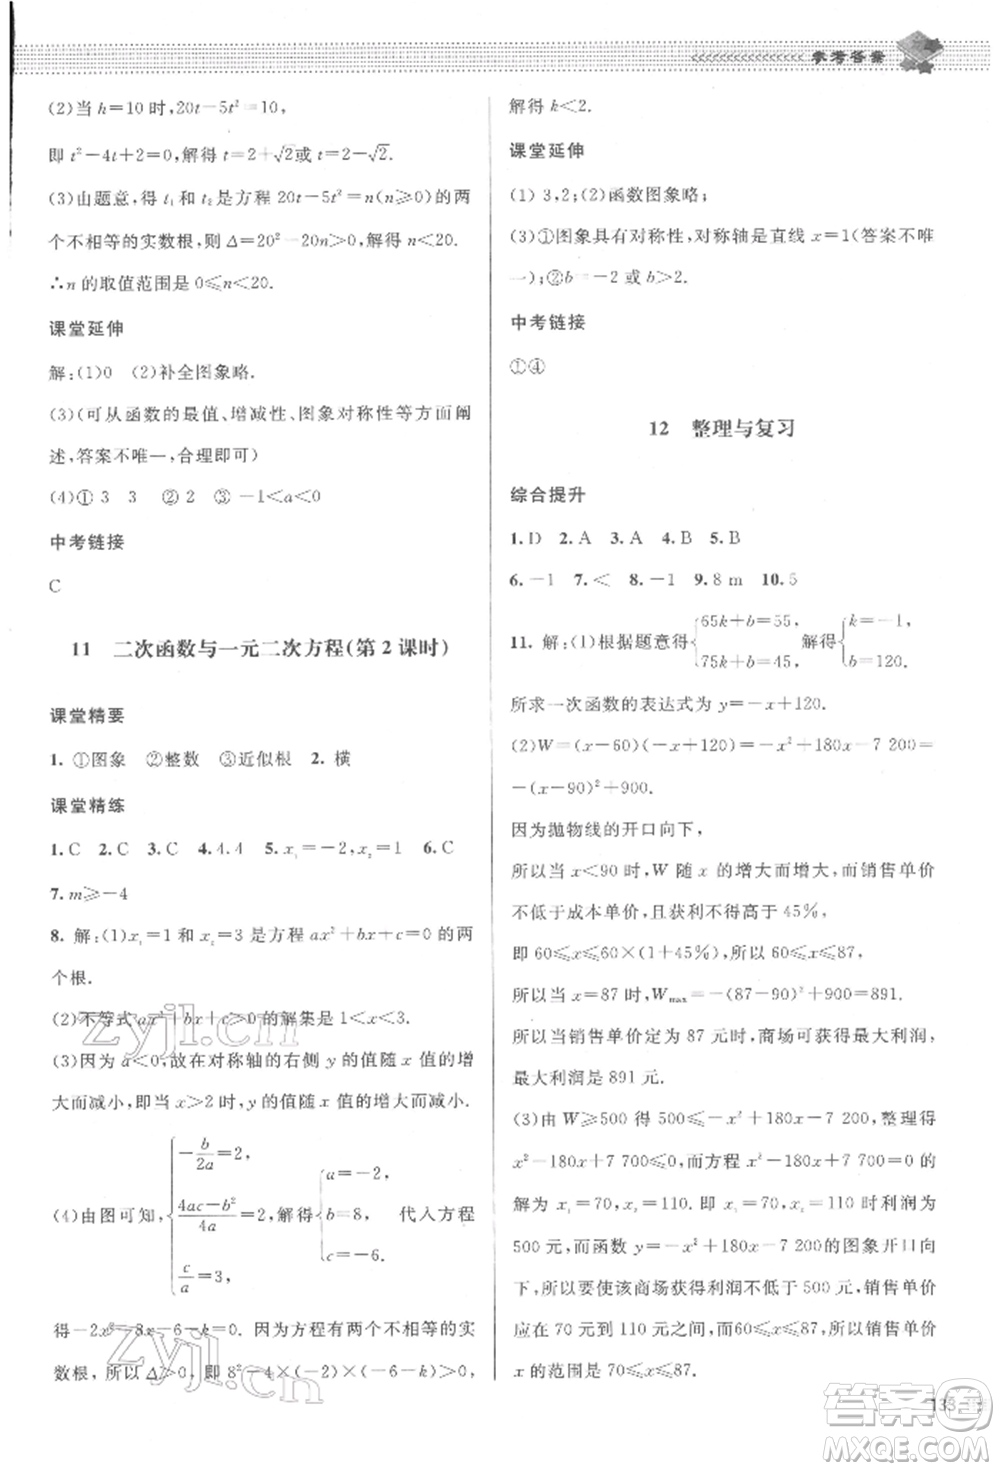 参考答案
(2)当 h=10 时,20t-5t²=10,
即 t²-4t+2=0,解得 t=2+√2或 t=2-√2.
(3)由题意,得 t₁ 和 t₂ 是方程 20t-5t²=n(n≥0)的两
个不相等的实数根,则 Δ=20²-20n>0,解得 n<20.
∴n 的取值范围是 0≤n<20.
课堂延伸
解:(1)0 (2)补全图象略.
(3)(可从函数的最值、增减性、图象对称性等方面阐
述,答案不唯一,合理即可)
(4)①3 3 ②2 ③-1<a<0
中考链接
C
11 二次函数与一元二次方程(第 2 课时)
课堂精要
1. ①图象 ②整数 ③近似根 2. 横
课堂精练
1.C 2.C 3.C 4.4.4 5.x₁=-2,x₂=1 6.C
7.m≥-4
8. 解:(1)x₁=1 和 x₂=3 是方程 ax²+bx+c=0 的两
个根.
(2)不等式 ax²+bx+c>0 的解集是 1<x<3.
(3)因为 a<0,故在对称轴的右侧 y 的值随 x 值的增
大而减小,即当 x>2 时,y 的值随 x 值的增大而减小.
(4)由图可知,{-b/2a=2, (4ac-b²)/4a=2, c/a=3, 解得{a=-2, b=8, c=-6. 代入方程
得-2x²+8x-6-k=0. 因为方程有两个不相等的实
数根,所以 Δ>0,即 8²-4×(-2)×(-6-k)>0,
解得 k<2.
课堂延伸
(1) 3,2;(2)函数图象略;
(3)①图象具有对称性,对称轴是直线 x=1(答案不唯
一);②b=-2 或 b>2.
中考链接
①④
12 整理与复习
综合提升
1.D 2.A 3.A 4.B 5.B
6.-1 7.< 8.-1 9.8 m 10.5
11. 解:(1)根据题意得{65k+b=55, 75k+b=45. 解得{k=-1, b=120.
所求一次函数的表达式为 y=-x+120.
(2)W=(x-60)(-x+120)=-x²+180x-7 200=
-(x-90)²+900.
因为抛物线的开口向下,
所以当 x<90 时,W 随 x 的增大而增大,而销售单价
不低于成本单价,且获利不得高于 45%,
即 60≤x≤60×(1+45%),所以 60≤x≤87,
所以当 x=87 时,Wmax=-(87-90)²+900=891.
所以当销售单价定为 87 元时,商场可获得最大利润,
最大利润是 891 元.
(3)由 W≥500 得 500≤-x²+180x-7 200,整理得
x²-180x+7 700≤0,而方程 x²-180x+7 700=0 的
解为 x₁=70,x₂=110. 即 x₁=70,x₂=110 时利润为
500 元,而函数 y=-x²+180x-7 200的图象开口向
下,所以要使该商场获得利润不低于 500 元,销售单价
应在 70 元到 110 元之间,而60≤x≤87,所以销售单价
x 的范围是 70≤x≤87.
133
zyjl.cn
zyjl.cn
答案圈
MXQE.COM